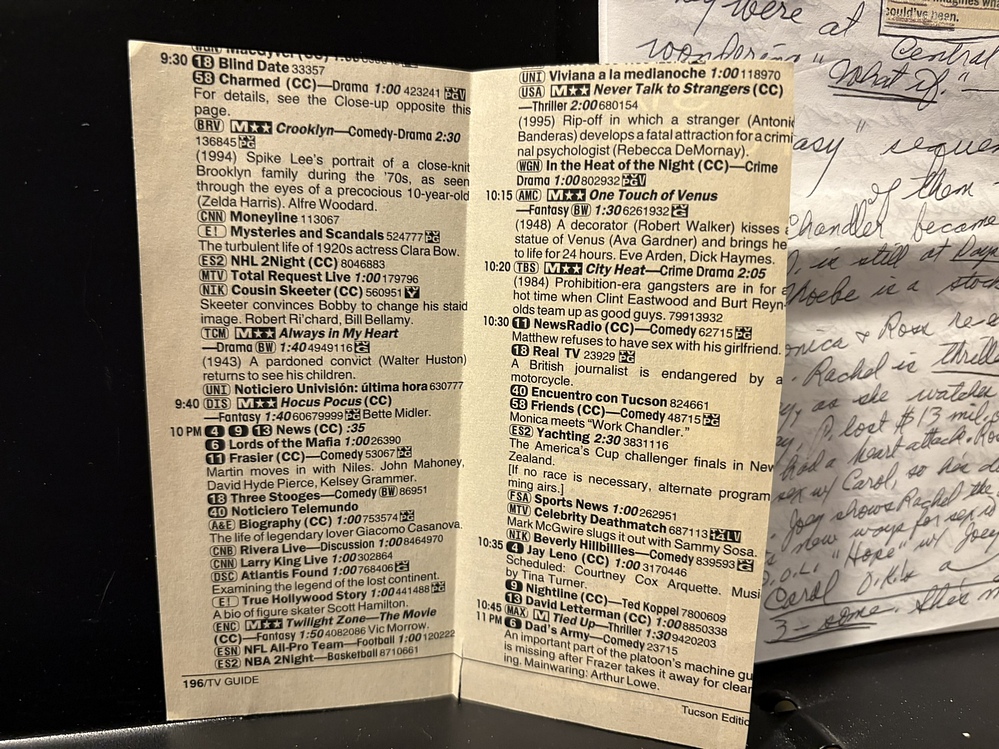 9:30 18 Blind Date 33357
58 Charmed (CC)—Drama 1:00 423241 PG V
For details, see the Close-up opposite this
page.
BRV M★★ Crooklyn—Comedy-Drama 2:30
136845 PG
(1994) Spike Lee's portrait of a close-knit
Brooklyn family during the '70s, as seen
through the eyes of a precocious 10-year-old
(Zelda Harris). Alfre Woodard.
CNN Moneyline 113067
E! Mysteries and Scandals 524777 PG
The turbulent life of 1920s actress Clara Bow.
ES2 NHL 2Night (CC) 8046883
MTV Total Request Live 1:00 179796
NIK Cousin Skeeter (CC) 560951 Y
Skeeter convinces Bobby to change his staid
image. Robert Ri'chard, Bill Bellamy.
TCM M★★ Always in My Heart
—Drama BW 1:40 4949116 G
(1943) A pardoned convict (Walter Huston)
returns to see his children.
UNI Noticiero Univisión: última hora 630777
9:40 DIS M★★ Hocus Pocus (CC)
—Fantasy 1:40 60679999 PG Bette Midler.
10 PM 4 9 13 News (CC) :35
6 Lords of the Mafia 1:00 26390
11 Frasier (CC)—Comedy 53067 PG
Martin moves in with Niles. John Mahoney,
David Hyde Pierce, Kelsey Grammer.
18 Three Stooges—Comedy BW 86951
40 Noticiero Telemundo
A&E Biography (CC) 1:00 753574 PG
The life of legendary lover Giacomo Casanova.
CNB Rivera Live—Discussion 1:00 8464970
CNN Larry King Live 1:00 302864
DSC Atlantis Found 1:00 768406 G
Examining the legend of the lost continent.
E! True Hollywood Story 1:00 441488 PG
A bio of figure skater Scott Hamilton.
ENC M★★ Twilight Zone—The Movie
(CC)—Fantasy 1:50 4082086 Vic Morrow.
ESN NFL All-Pro Team—Football 1:00 120222
ES2 NBA 2Night—Basketball 8710661
196/TV GUIDE
UNI Viviana a la medianoche 1:00 118970
USA M★★ Never Talk to Strangers (CC)
—Thriller 2:00 680154
(1995) Rip-off in which a stranger (Antonio
Banderas) develops a fatal attraction for a crimi
nal psychologist (Rebecca DeMornay).
WGN In the Heat of the Night (CC)—Crime
Drama 1:00 802932 PG V
10:15 AMC M★★ One Touch of Venus
—Fantasy BW 1:30 6261932 G
(1948) A decorator (Robert Walker) kisses a
statue of Venus (Ava Gardner) and brings he
to life for 24 hours. Eve Arden, Dick Haymes.
10:20 TBS M★★ City Heat—Crime Drama 2:05
(1984) Prohibition-era gangsters are in for a
hot time when Clint Eastwood and Burt Reyn
olds team up as good guys. 79913932
10:30 11 NewsRadio (CC)—Comedy 62715 PG
Matthew refuses to have sex with his girlfriend.
18 Real TV 23929 PG
A British journalist is endangered by a
motorcycle.
40 Encuentro con Tucson 824661
58 Friends (CC)—Comedy 48715 PG
Monica meets "Work Chandler."
ES2 Yachting 2:30 3831116
The America's Cup challenger finals in New
Zealand.
[If no race is necessary, alternate program
ming airs.]
FSA Sports News 1:00 262951
MTV Celebrity Deathmatch 687113 14 LV
Mark McGwire slugs it out with Sammy Sosa.
NIK Beverly Hillbillies—Comedy 839593 G
10:35 4 Jay Leno (CC) 1:00 3170446
Scheduled: Courtney Cox Arquette. Musi
by Tina Turner.
9 Nightline (CC)—Ted Koppel 7800609
13 David Letterman (CC) 1:00 8850338
10:45 MAX M Tied Up—Thriller 1:30 9420203
11 PM 6 Dad's Army—Comedy 23715
An important part of the platoon's machine gu
is missing after Frazer takes it away for clean
ing. Mainwaring: Arthur Lowe.
Tucson Editio
could've been.
they were at Central
wondering "What if."
asy" sequen
of them
Chandler became
is still at
Phoebe is a stock
onica & Ross
Rachel is thrille
as she watches
lost $13 mil
had a heart attack.
sex w/ Carol, so he's
Joey shows Rachel the
new ways for sex
O.O.L. "Hope" w/ Joey
Carol O.K's a
3-some.